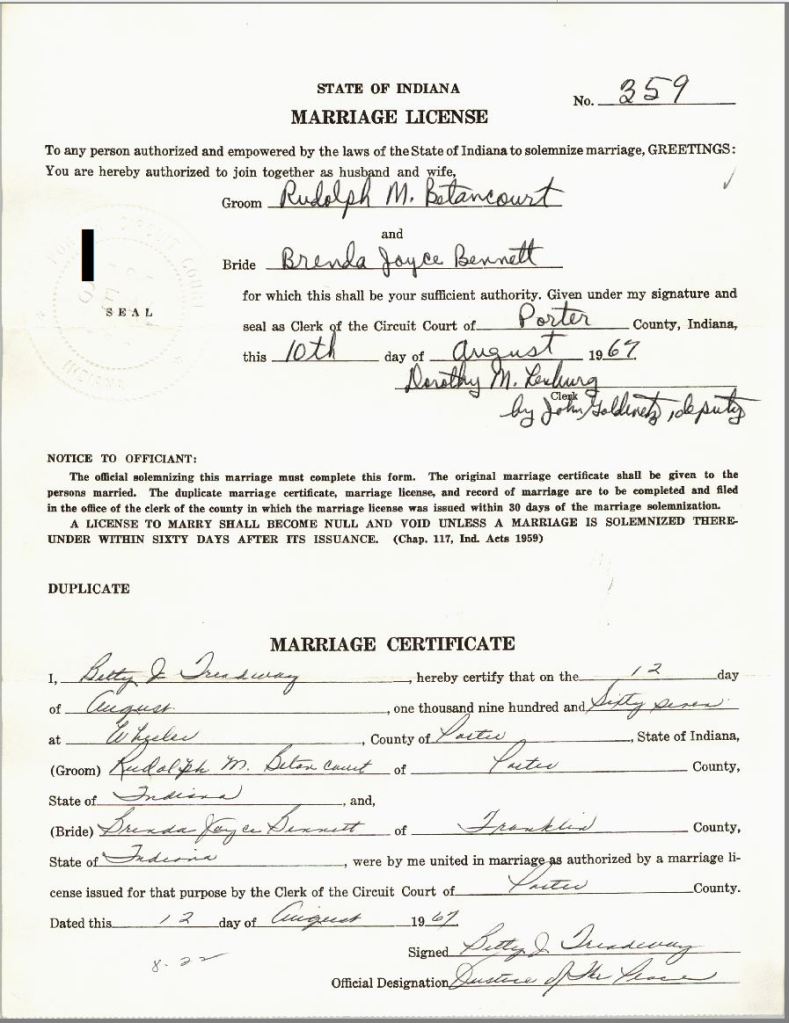 STATE OF INDIANA
No. 359
MARRIAGE LICENSE
To any person authorized and empowered by the laws of the State of Indiana to solemnize marriage, GREETINGS:
You are hereby authorized to join together as husband and wife,
Groom Rudolph M. Betancourt
and
Bride Brenda Joyce Bennett
for which this shall be your sufficient authority. Given under my signature and
SEAL
seal as Clerk of the Circuit Court of Porter County, Indiana,
this 10th day of August 1967.
Dorothy M.
Clerk
by John , deputy
NOTICE TO OFFICIANT:
The official solemnizing this marriage must complete this form. The original marriage certificate shall be given to the
persons married. The duplicate marriage certificate, marriage license, and record of marriage are to be completed and filed
in the office of the clerk of the county in which the marriage license was issued within 30 days of the marriage solemnization.
A LICENSE TO MARRY SHALL BECOME NULL AND VOID UNLESS A MARRIAGE IS SOLEMNIZED THERE-
UNDER WITHIN SIXTY DAYS AFTER ITS ISSUANCE. (Chap. 117, Ind. Acts 1959)
DUPLICATE
MARRIAGE CERTIFICATE
I, Betty J Treadway, hereby certify that on the 12 day
of August, one thousand nine hundred and Sixty seven
at Wheeler, County of Porter, State of Indiana,
(Groom) Rudolph M. Betancourt of Porter County,
State of Indiana, and,
(Bride) Brenda Joyce Bennett of Franklin County,
State of Indiana, were by me united in marriage as authorized by a marriage li-
cense issued for that purpose by the Clerk of the Circuit Court of Porter County.
Dated this 12 day of August 1967.
Signed Betty J. Treadway
8-22
Official Designation Justice of the Peace